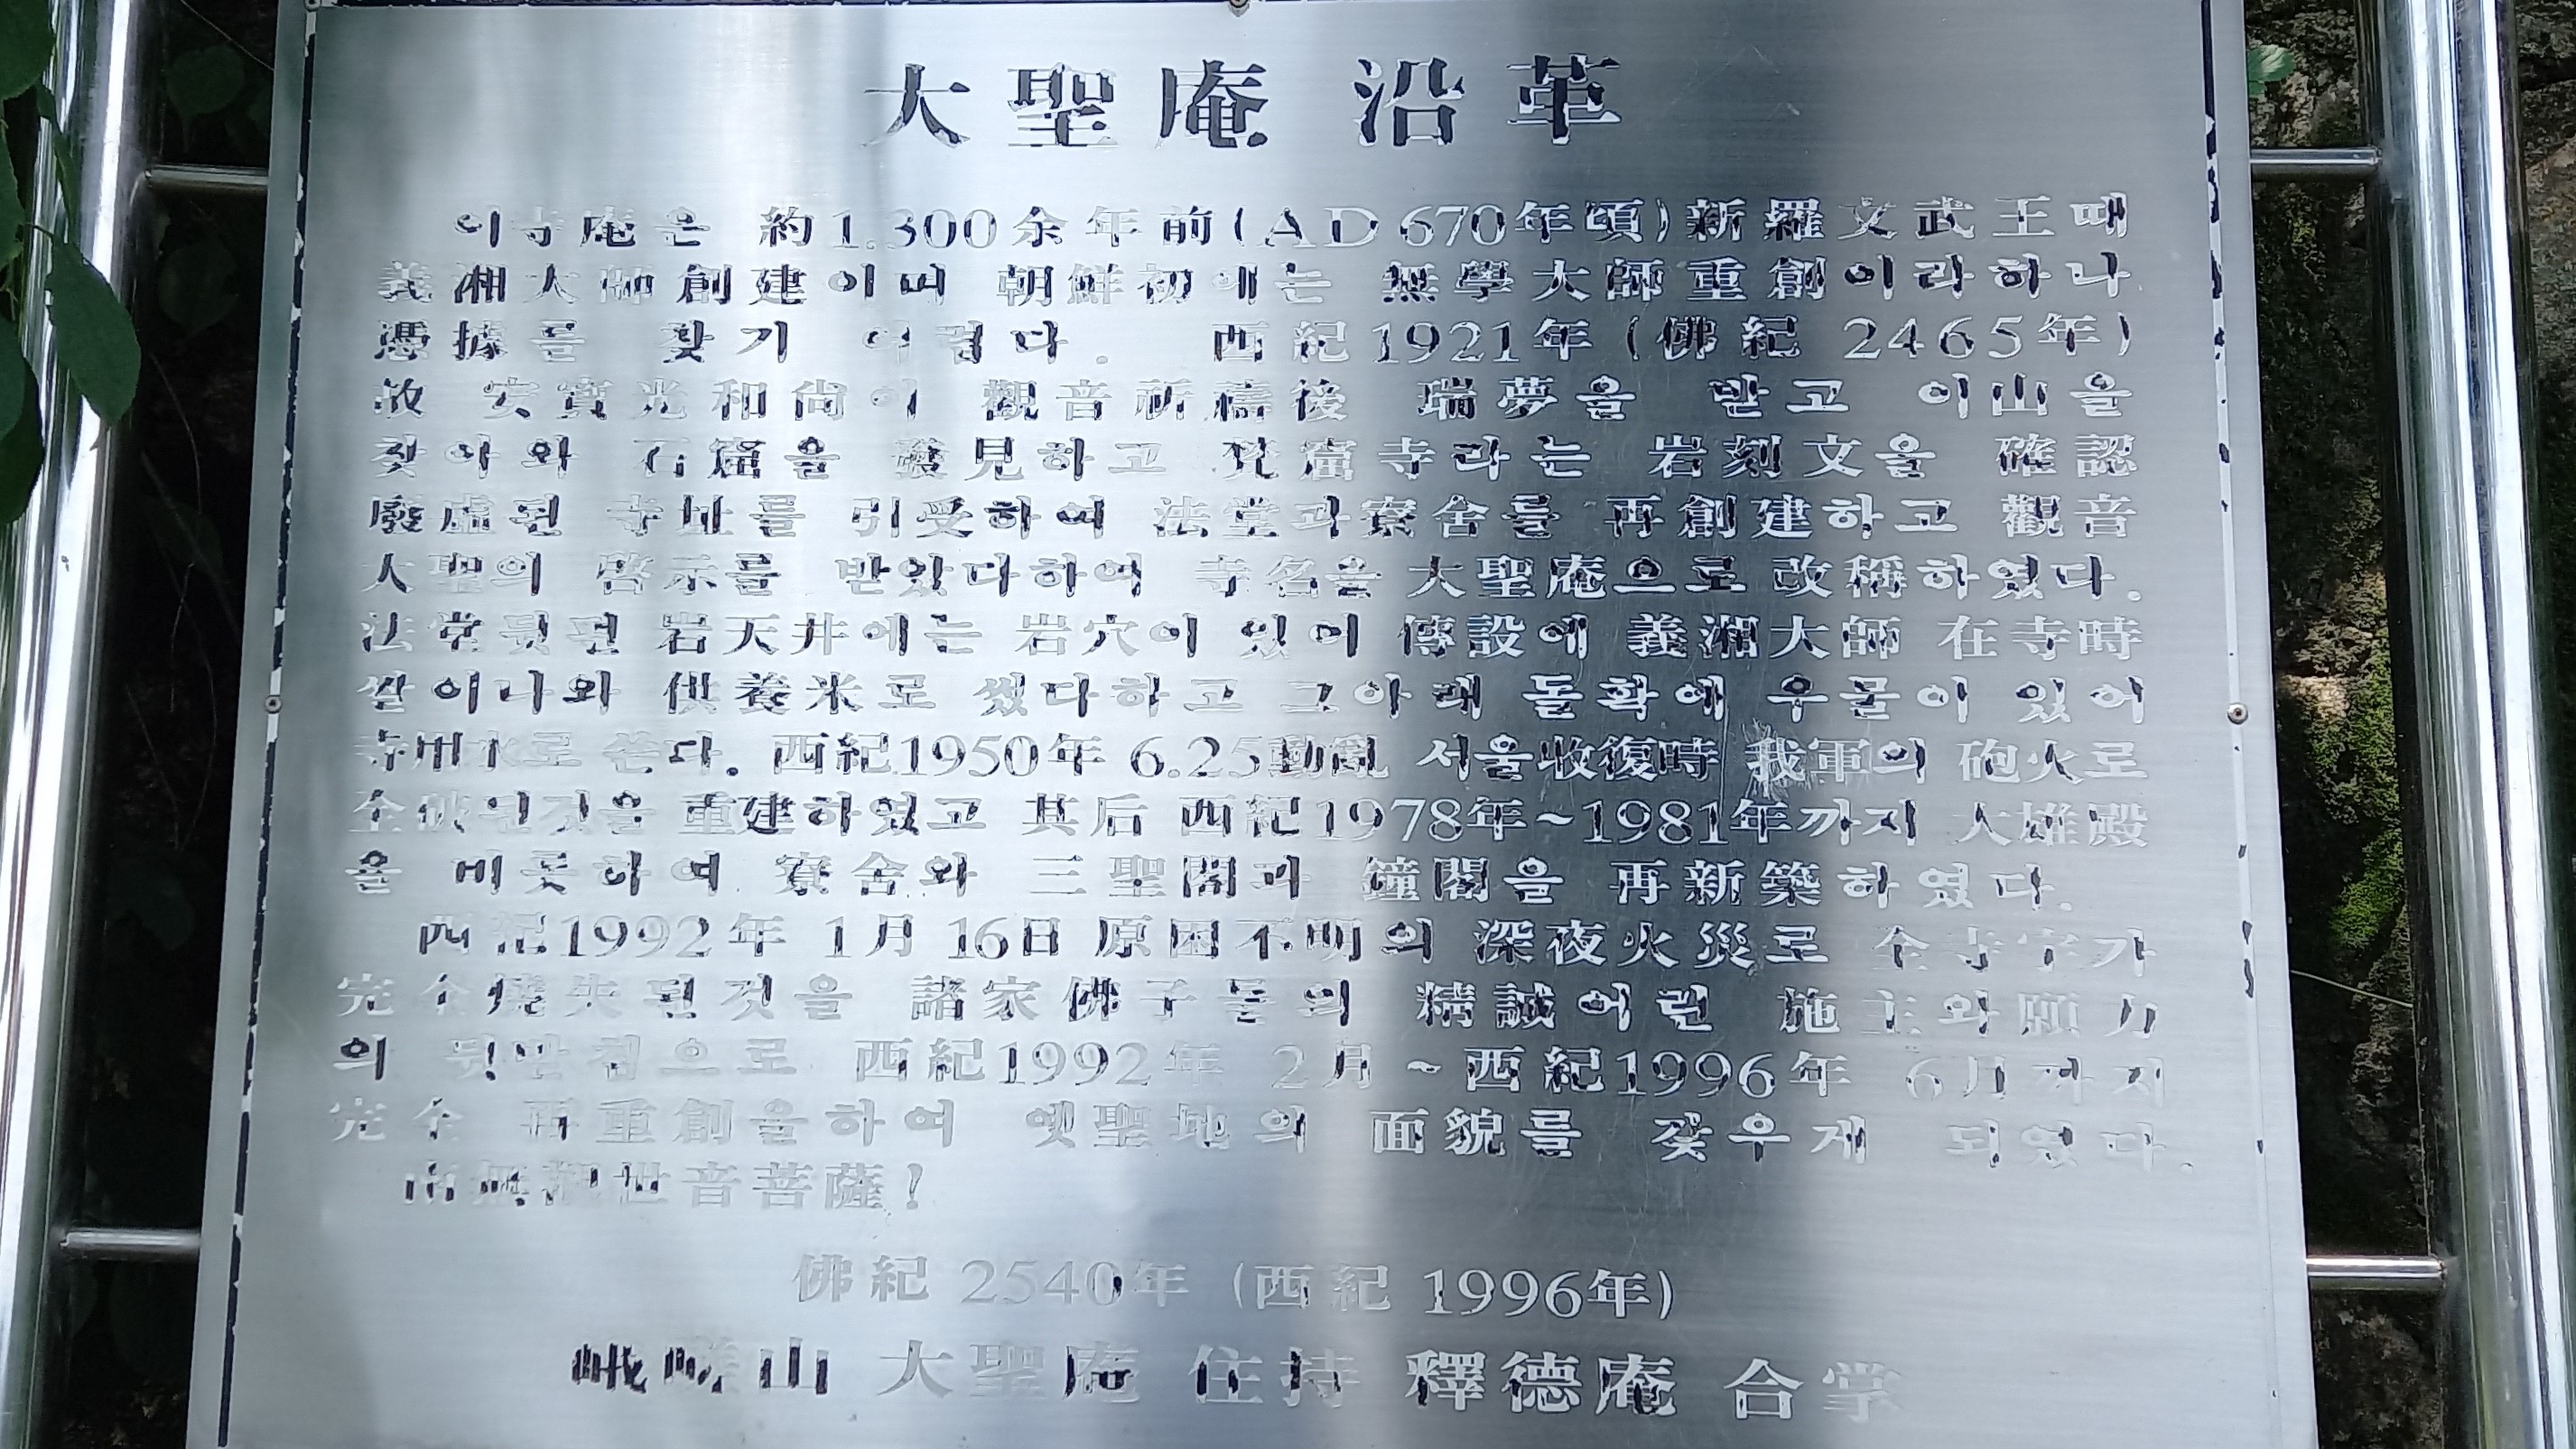 大聖庵 沿革
이寺庵은 約1.300余年前(AD 670年頃)新羅文武王때
義湘大師創建이며 朝鮮初에는 無學大師重創이라하나
憑據를 찾기 어렵다. 西紀1921年(佛紀 2465年)
故 安寶光和尙이 觀音祈禱後 瑞夢을 받고 이山을
찾아와 石窟을 發見하고 梵窟寺라는 岩刻文을 確認
廢虛된 寺址를 引受하여 法堂과寮舍를 再創建하고 觀音
大聖의 啓示를 받았다하여 寺名을 大聖庵으로 改稱하였다.
法堂뒷편 岩天井에는 岩穴이 있어 傳設에 義湘大師 在寺時
쌀이나와 供養米로 썼다하고 그아래 돌확에 우물이 있어
寺用水로 쓴다. 西紀1950年 6.25動亂 서울收復時 我軍의 砲火로
全破된것을 重建하였고 其后 西紀1978年~1981年까지 大雄殿
을 비롯하여 寮舍와 三聖閣과 鐘閣을 再新築하였다.
西紀1992年 1月 16日 原因不明의 深夜火災로 全寺宇가
完全燒失된것을 諸家佛子들의 精誠어린 施主와願力
의 뒷받침으로 西紀1992年 2月~西紀1996年 6月까지
完全 再重創을하여 옛聖地의 面貌를 갖우게 되었다.
南無觀世音菩薩!
佛紀 2540年 (西紀 1996年)
峨嵯山 大聖庵 住持 釋德庵 合掌